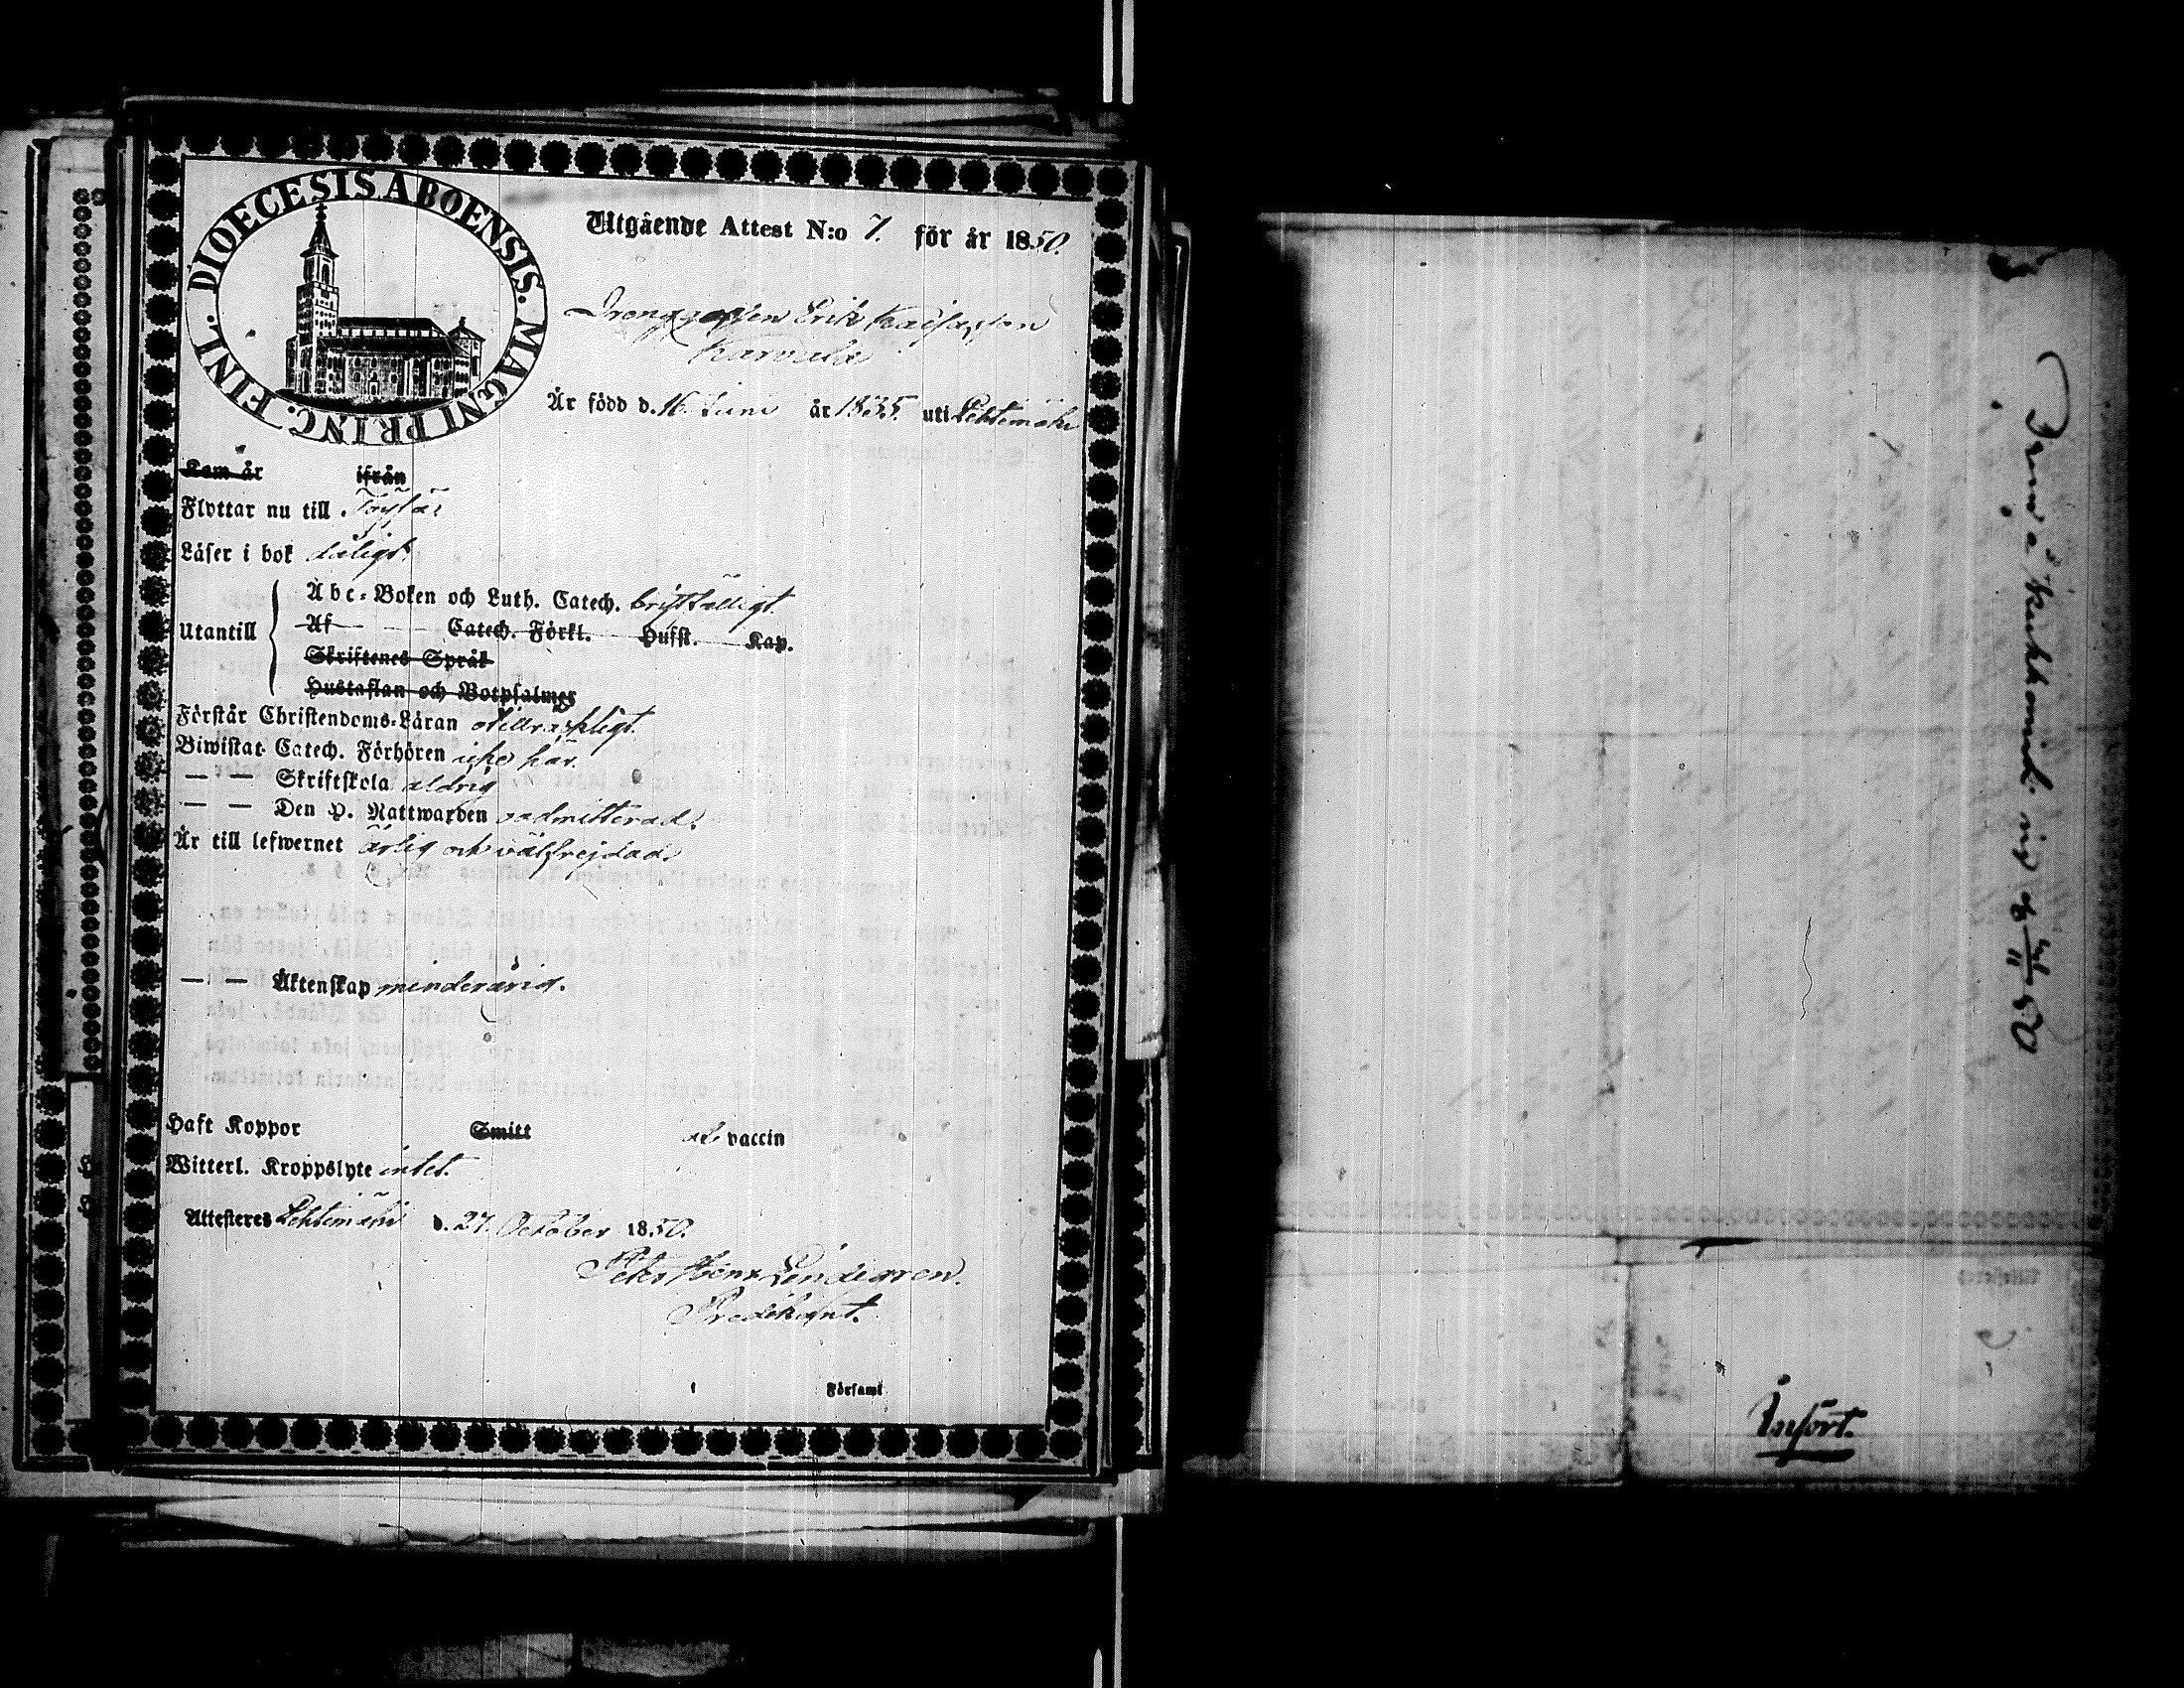 DIOECESIS ABOENSIS. MAGNI PRINC. FINL.
Utgående Attest N:o 7. för år 1850.
Drenggossen Erik Kaisasson
Karvala
Är född d. 16. Juni år 1835. uti Lehtimäki
Kom år ifrån
Flyttar nu till Töysä.
Läser i bok dåligt.
Utantill
Abc-Boken och Luth. Catech. bristfälligt.
Af Catech. Förkl. Hufst. Kap.
Skriftenes Språk
Hustaflan och Botpsalmer
Förstår Christendoms-Läran otillräckligt.
Biwistat Catech. Förhören icke här.
— — Skriftskola aldrig
— — Den H. Nattwarden oadmitterad.
Är till lefwernet ärlig och välfrejdad.
— — Äktenskap minderårig.
Haft Koppor Smitt af vaccin
Witterl. Kroppslyte intet.
Attesteres Lehtimäki d. 27. October 1850.
Petr Henr Lindegren.
Predikant.
Församl
Infört.